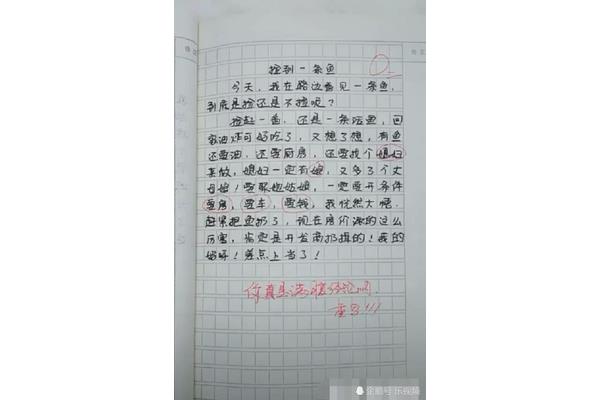 捡到一条鱼
今天，我在路边看见一条鱼，
到底是捡还是不捡呢？
捡起一看，还是一条活鱼，回
家油炸可好吃了，又想了想，有鱼
还要油，还要厨房，还要找个媳妇
来做，媳妇一定有娘，又多了个丈
母娘！要娶她姑娘，一定要开条件
要房，要车，要钱，我恍然大悟，
赶紧把鱼扔了，现在房价涨的这么
厉害，肯定是开发商扔掉的！我的
妈呀！差点上当了！
你真是活
重写！！！
企鹅号 乐视频